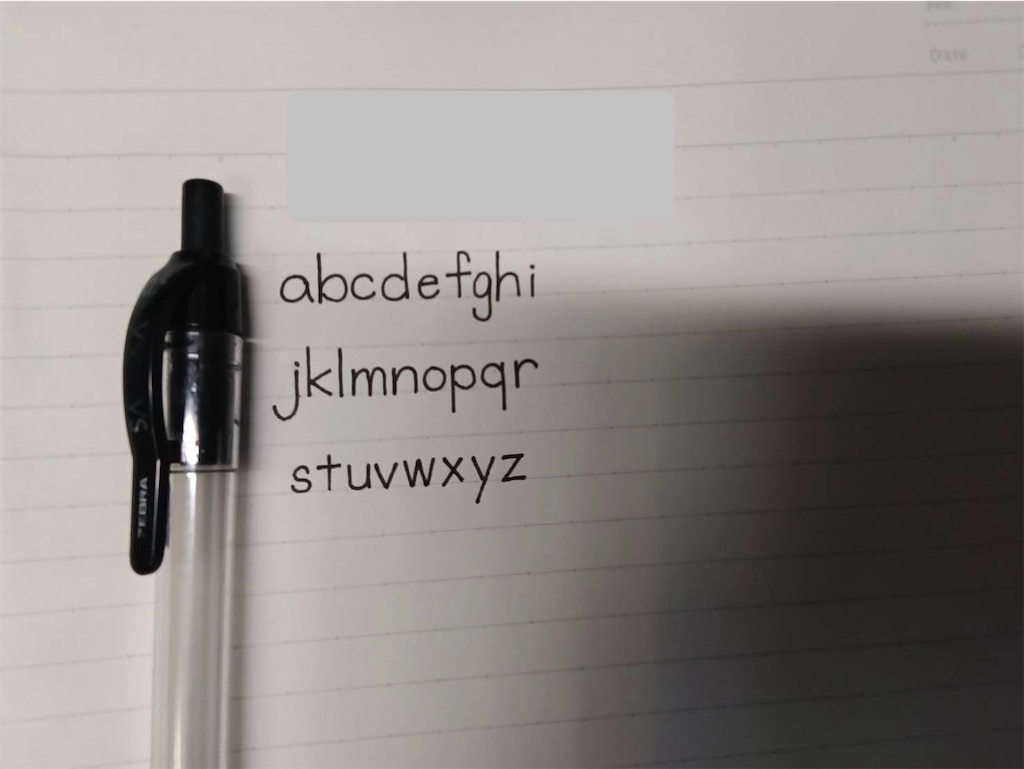 No.
Date
abcdefghi
jklmnopqr
stuvwxyz
ZEBRA